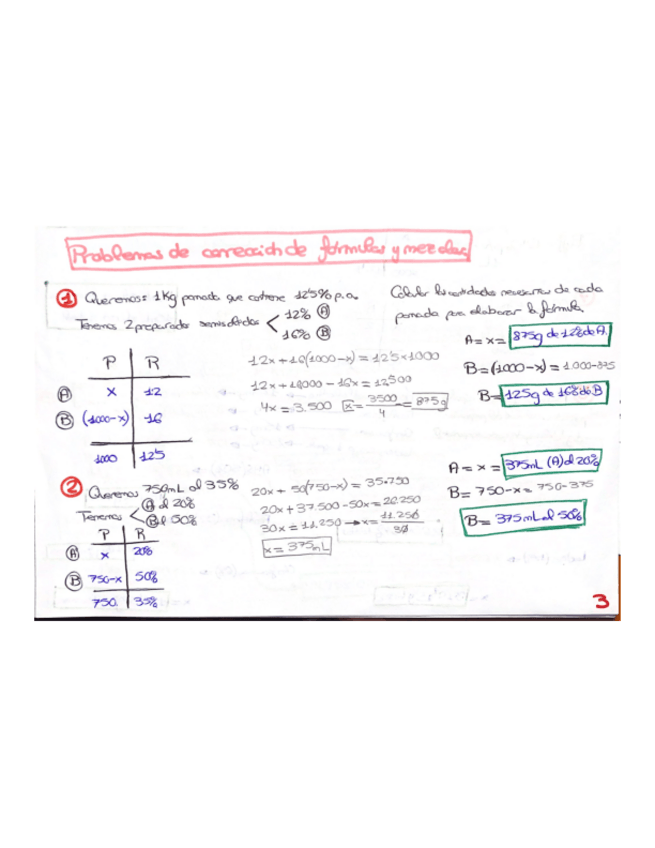 Problemas de corrección de fórmulas y mezclas
① Queremos: 1Kg pomada que contiene 12'5% p.a.
Tenemos 2 preparados semisólidos < 12% Ⓐ
16% Ⓑ
Calcular las cantidades necesarias de cada
pomada para elaborar la fórmula.
P R
Ⓐ x 12
Ⓑ (1000-x) 16
1000 12'5
12x + 16(1000-x) = 12'5 x 1000
12x + 16000 - 16x = 12500
4x = 3.500 x = 3500/4 = 875g
A = x = 875g de 12% de A.
B = (1000-x) = 1.000-875
B = 125g de 16% de B
② Queremos 750mL al 35%
Tenemos < Ⓐ al 20%
Ⓑ al 50%
P R
Ⓐ x 20%
Ⓑ 750-x 50%
750 35%
20x + 50(750-x) = 35·750
20x + 37.500 - 50x = 26.250
30x = 11.250 → x = 11.250/30
x = 375mL
A = x = 375mL (A) al 20%
B = 750-x = 750-375
B = 375mL al 50%
3